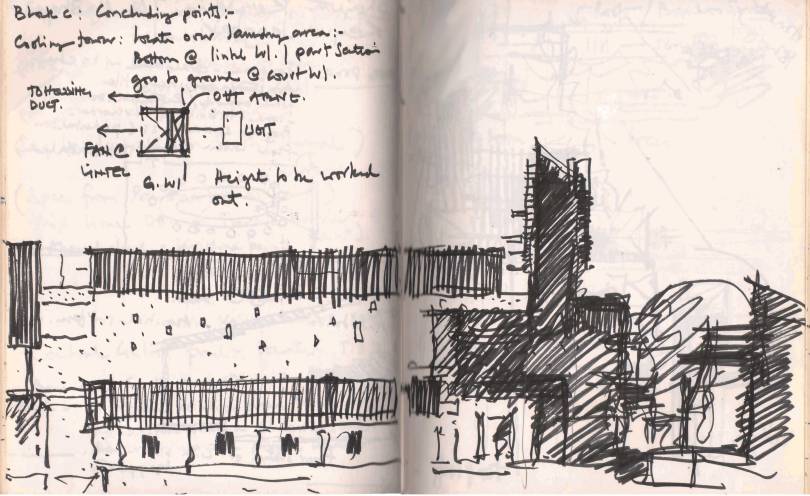 Block C: Concluding points:-
Cooling tower: Locate over laundry area:-
Bottom @ lintel lvl. / part Section
goes to ground @ court lvl.
DUCT.
OUT
UNIT
FAN @
LINTEL
Height to be worked
out.